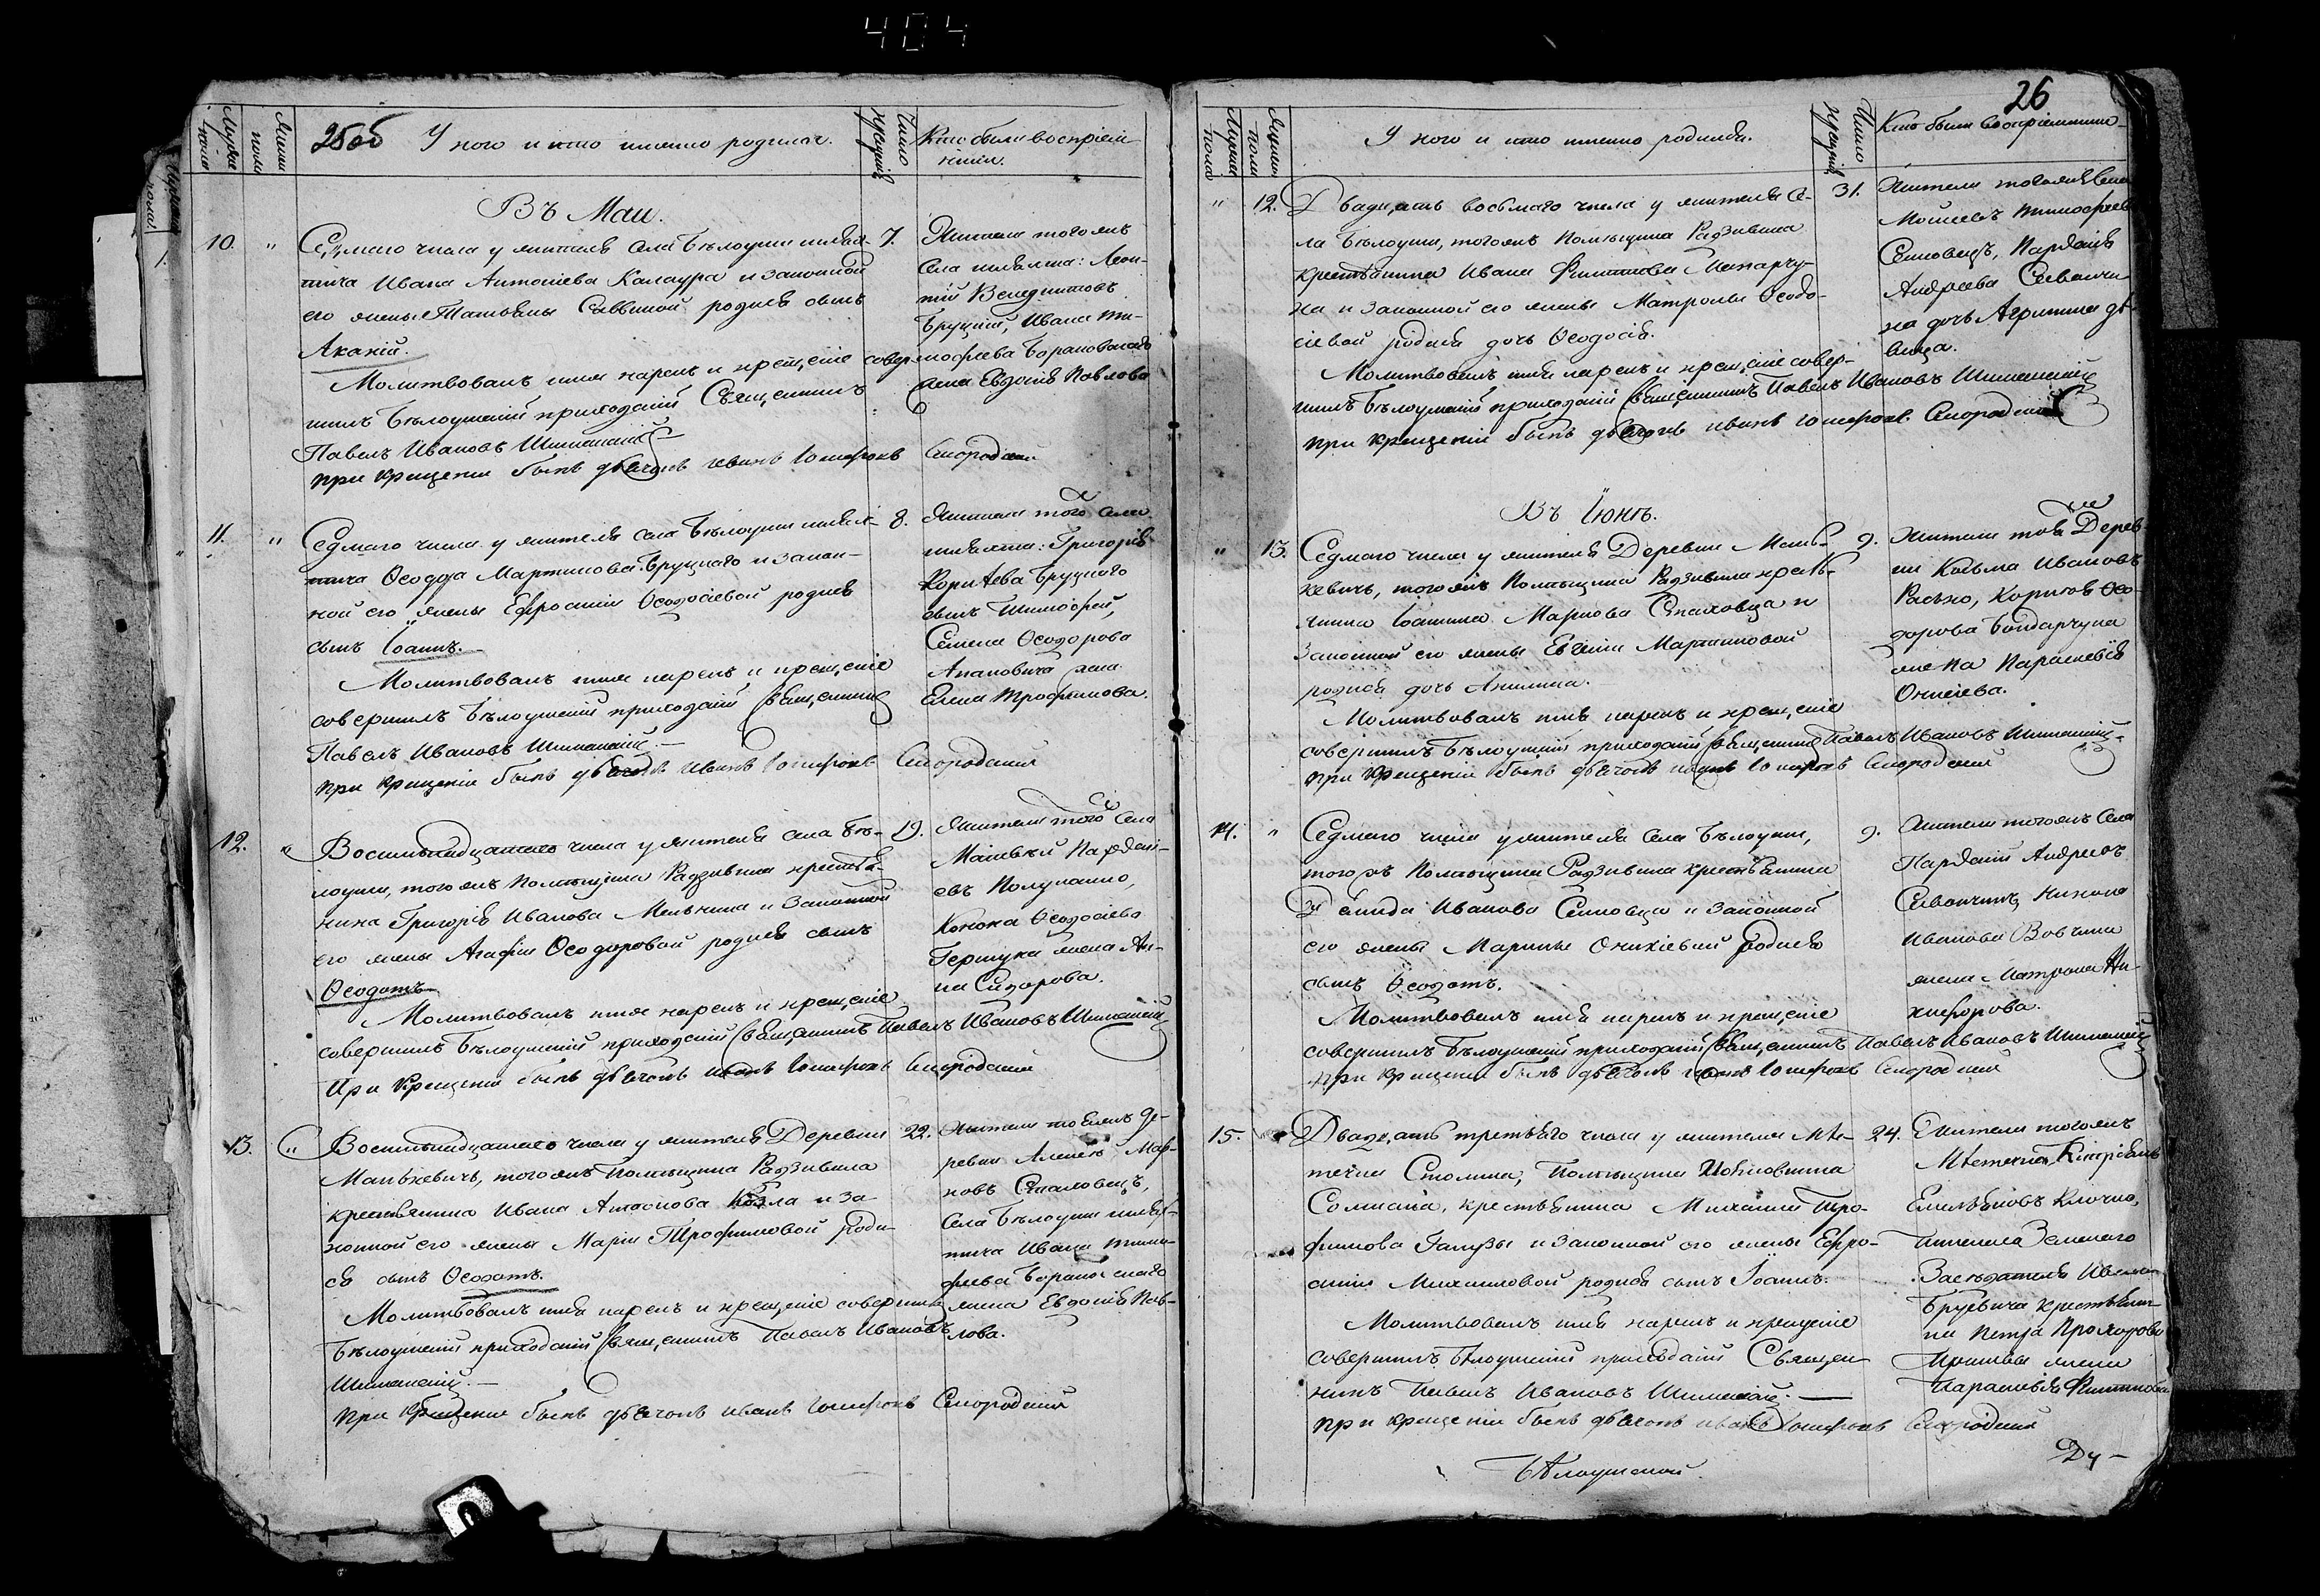 404
Мужеска пола
Женска пола
25об У кого и кто именно родился.
Число крещенія
Кто были воспріем-
ники.
Въ Маи.
10. " Седмаго числа у жителя села Бѣлоуши шлях- 7.
тича Ивана Антоніева Калаура и законной
его жены Татьяны Саввиной родился сынъ
Акакій.
Молитвовалъ имя нарекъ и крещеніе совер-
шилъ Бѣлоушскій приходскій Священникъ
Павелъ Ивановъ Шиманскій
при крещеніи былъ дьячокъ иванъ іосифовъ Смородскій
Жители тогожъ
села шляхта: Леон-
тій Венедиктовъ
Бруцкій, Ивана Ти-
мофеева Барановскаго
жена Евдокія Павлова
11. " Седмаго числа у жителя села Бѣлоуши шлях- 8.
тича Ѳеодора Мартинова Бруцкаго и закон-
ной его жены Ефросиніи Ѳеодосіевой родился
сынъ Іоаннъ.
Молитвовалъ имя нарекъ и крещеніе
совершилъ Бѣлоушскій приходскій Священникъ
Павелъ Ивановъ Шиманскій.
при крещеніи былъ дьячокъ иванъ іосифовъ Смородскій
Жители того села
шляхта: Григорія
Бруцкаго
сынъ Тимофей,
Семена Ѳеодорова
жена
Елена Трофимова.
12. " Восемьнадцатаго числа у жителя села Бѣ- 19.
лоуши, тогожъ Помѣщика Радзивила крестья-
нина Григорія Иванова Мельника и законной
его жены Агафіи Ѳеодоровой родился сынъ
Ѳеодотъ.
Молитвовалъ имя нарекъ и крещеніе
совершилъ Бѣлоушскій приходскій Священникъ Павелъ Ивановъ Шиманскій
При крещеніи былъ дьячокъ иванъ іосифовъ Смородскій
Жители того села
Матвѣй Парфені-
евъ
Конона Ѳеодосіева
жена Ан-
на Сидорова.
13. " Восемьнадцатаго числа у жителя Деревни 22.
Манькевичъ, тогожъ Помѣщика Радзивила
крестьянина Ивана Козла и за-
конной его жены Маріи Трофимовой роди-
ся сынъ Ѳеодотъ.
Молитвовалъ имя нарекъ и крещеніе совершилъ
Бѣлоушскій приходскій Священникъ Павелъ Ивановъ
Шиманскій.
при крещеніи былъ дьячокъ иванъ іосифовъ Смородскій
Жители тоежъ де-
ревни Алексѣй Мар-
ковъ Спаловецъ,
села Бѣлоуши шлях-
тича Ивана Тимо-
феева Барановскаго
жена Евдокія Пав-
лова.
26
Мужеска пола
Женска пола
У кого и кто именно родился.
Число крещенія
Кто были воспріемники
" 12. Двадцать восьмаго числа у жителя се- 31.
ла Бѣлоуши, тогожъ Помѣщика Радзивила
крестьянина Ивана Филипова
и законной его жены Матроны Ѳеодо-
сіевой родися дочь Ѳеодосія.
Молитвовалъ имя нарекъ и крещеніе совер-
шилъ Бѣлоушскій приходскій Священникъ Павелъ Ивановъ Шиманскій
при крещеніи былъ дьячокъ иванъ іосифовъ Смородскій
Жители тогожъ Села
Моисей Тимофеевъ
Семовецъ, Парфенія
Андреева
дочь Агрипина дѣ-
вица.
Въ Іюнѣ.
" 13. Седмаго числа у жителя Деревни Мань- 9.
кевичъ, тогожъ Помѣщика Радзивила кресть-
янина Іоакима Маркова Спаловца и
законной его жены Евгеніи Мартиновой
родися дочь Акилина.
Молитвовалъ имя нарекъ и крещеніе
совершилъ Бѣлоушскій приходскій Священникъ Павелъ Ивановъ Шиманскій.
при крещеніи былъ дьячокъ иванъ іосифовъ Смородскій
Жители тояже Дерев-
ни Козьма Ивановъ
Ѳео-
дорова Бондарчука
жена Параскевія
14. " Седмаго числа у жителя Села Бѣлоуши, 9.
тогожъ Помѣщика Радзивила крестьянина
Иванова Семовца и законной
его жены Марины родися
сынъ Ѳеодотъ.
Молитвовалъ имя нарекъ и крещеніе
совершилъ Бѣлоушскій приходскій Священникъ Павелъ Ивановъ Шиманскій
при крещеніи былъ дьячокъ иванъ іосифовъ Смородскій
Жители тогожъ Села
Парфеній Андреевъ
Никона
Иванова Вовчика
жена Матрона Ни-
кифорова.
15. " Двадцать третьяго числа у жителя Мѣ- 24.
течка Столина, Помѣщика
крестьянина Михаила Тро-
фимова Галузы и законной его жены Ефро-
синіи Михаиловой родися сынъ Іоаннъ.
Молитвовалъ имя нарекъ и крещеніе
совершилъ Бѣлоушскій приходскій Священ-
никъ Павелъ Ивановъ Шиманскій.
при крещеніи былъ дьячокъ иванъ іосифовъ Смородскій
Жители тогожъ
Мѣстечка
Клочко,
Земскаго
Засѣдателя Ивана
крестьяни-
на Петра Прохорова
жена
Параскевія Филипова
Бѣлоушской.
Ду-